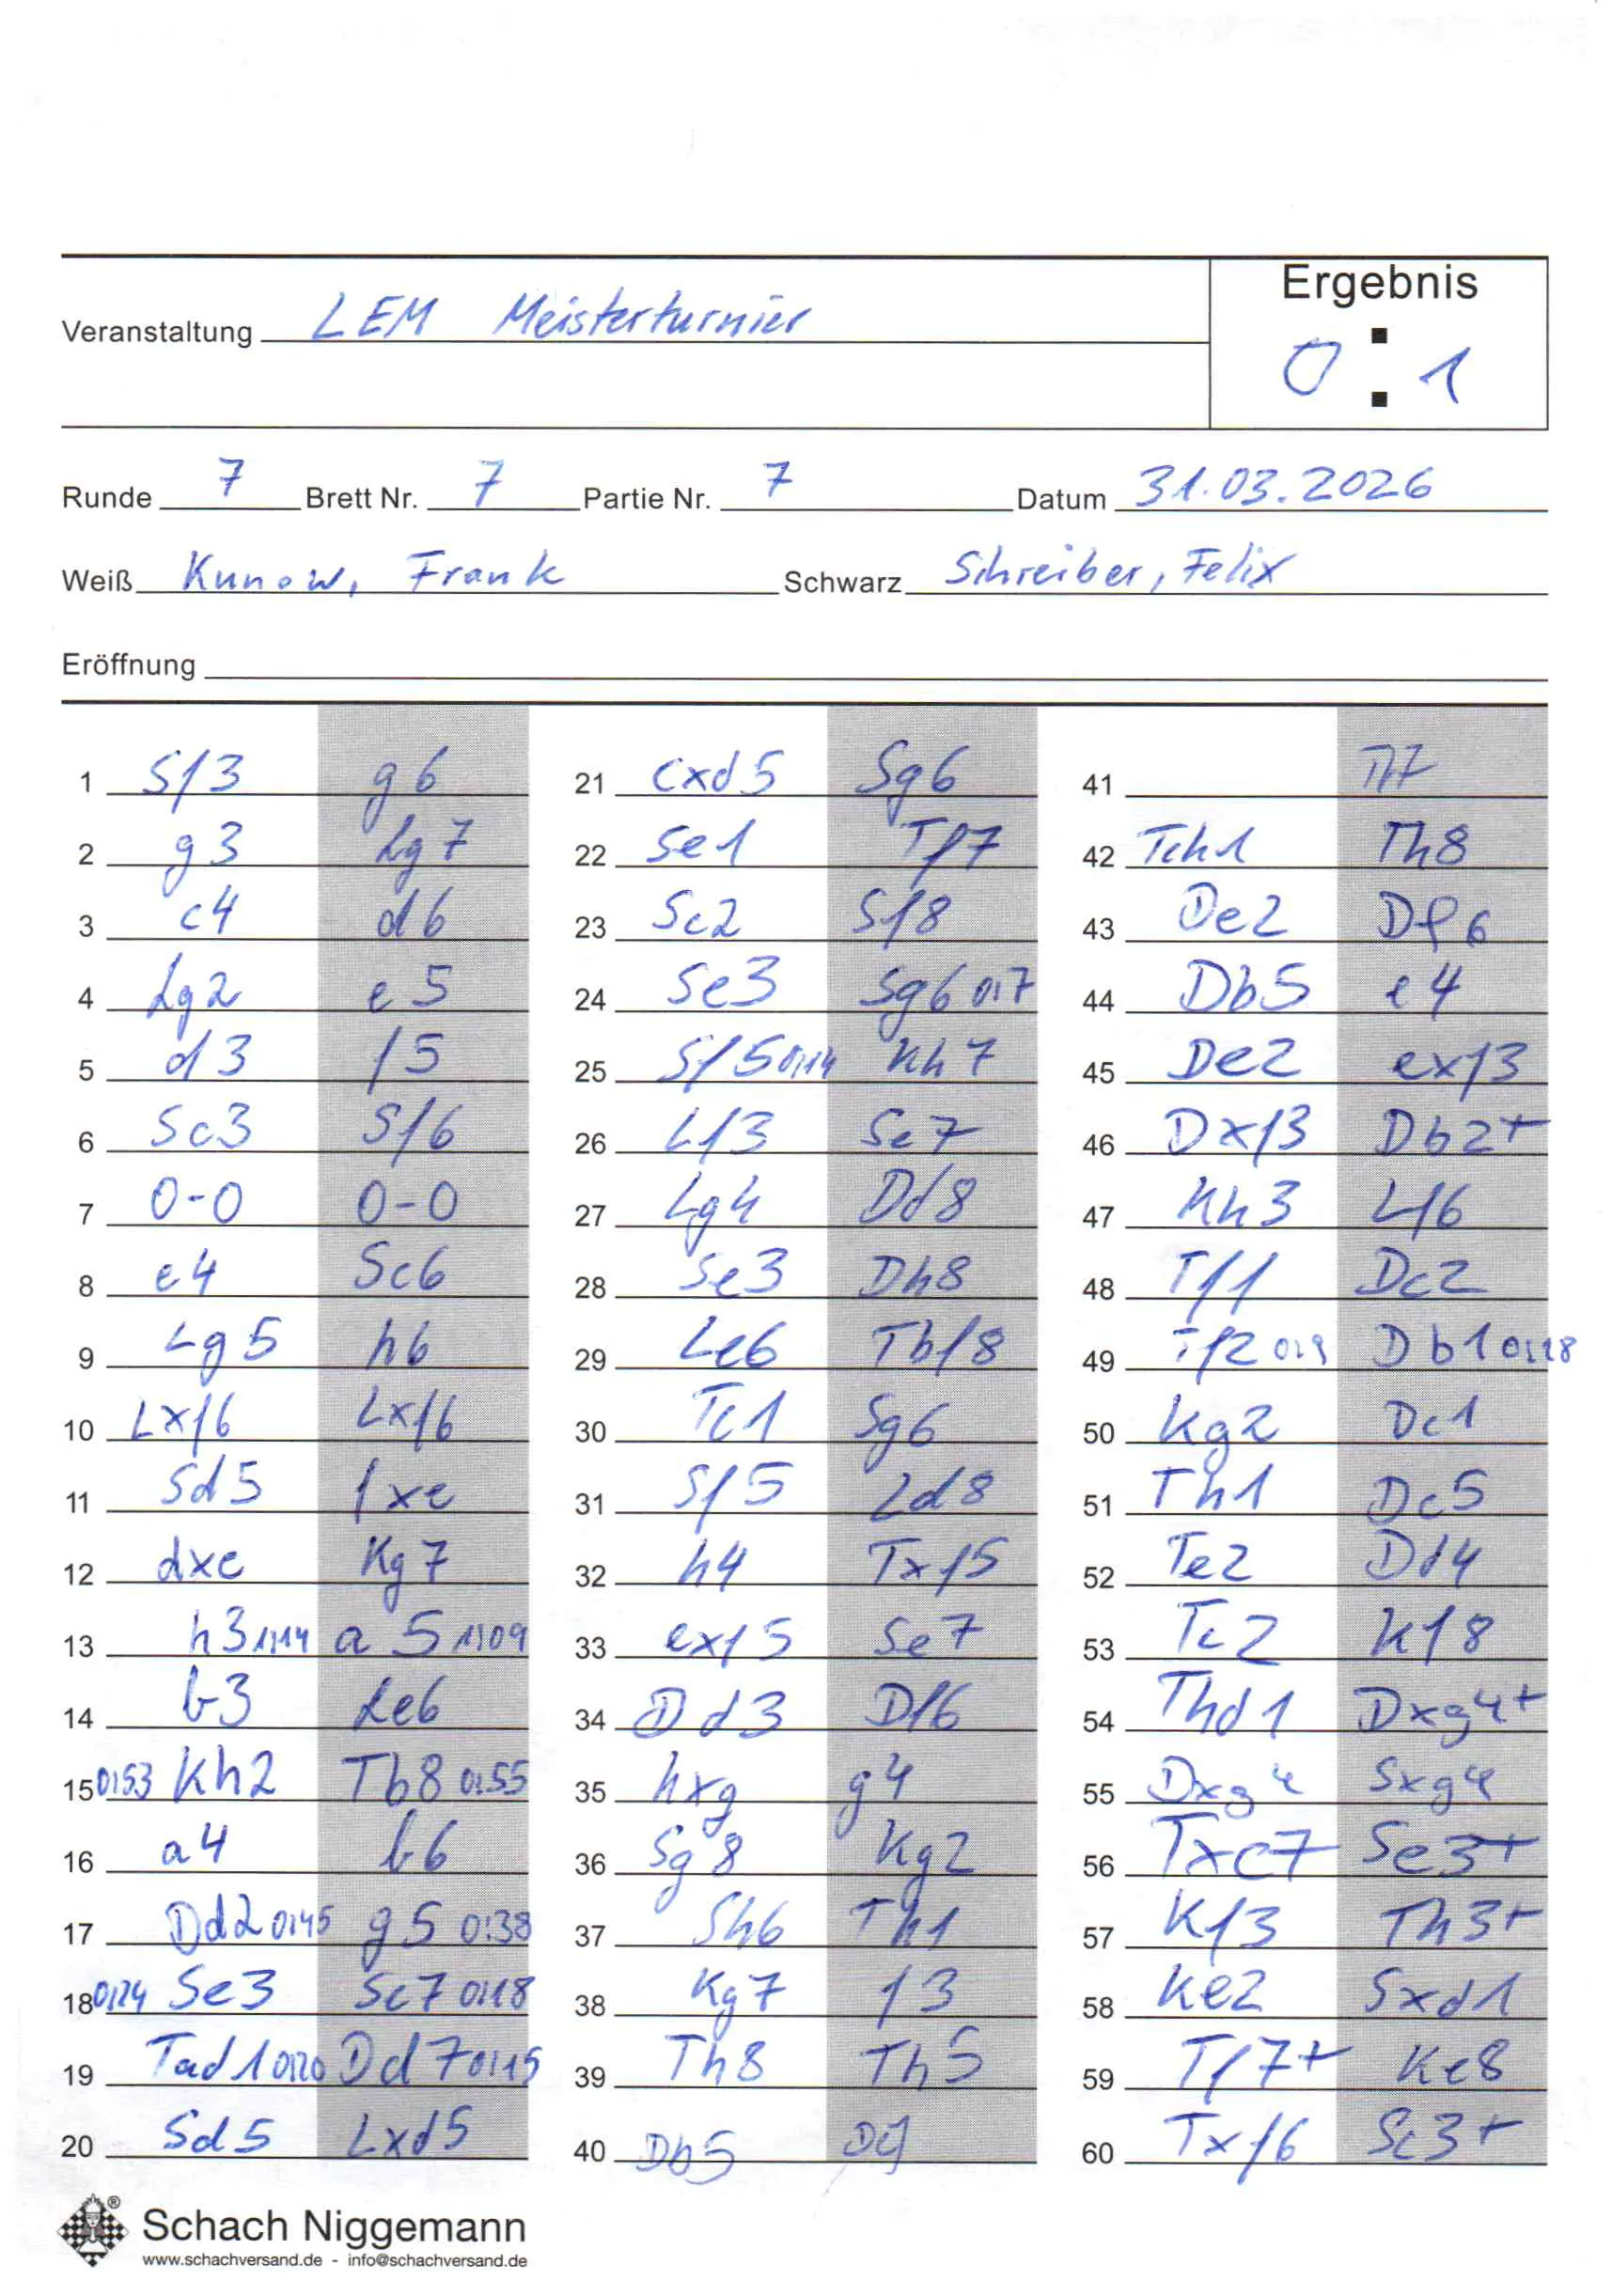 Ergebnis
Veranstaltung LEM Meisterturnier
0 : 1
Runde 7 Brett Nr. 7 Partie Nr. 7 Datum 31.03.2026
Weiß Kunow, Frank Schwarz Schreiber, Felix
Eröffnung
1 Sf3 g6
2 g3 Lg7
3 c4 d6
4 Lg2 e5
5 d3 f5
6 Sc3 Sf6
7 0-0 0-0
8 e4 Sc6
9 Lg5 h6
10 Lxf6 Lxf6
11 Sd5 fxe
12 dxe Kg7
13 h3 1:14 a5 1:09
14 b3 Le6
15 0:53 Kh2 Tb8 0:55
16 a4 b6
17 Dd2 0:45 g5 0:38
18 0:24 Se3 Se7 0:18
19 Tad1 0:20 Dd7 0:15
20 Sd5 Lxd5
21 cxd5 Sg6
22 Se1 Tf7
23 Sc2 Sf8
24 Se3 Sg6 0:7
25 Sf5 0:14 Kh7
26 Lf3 Se7
27 Lg4 Dd8
28 Se3 Dh8
29 Le6 Tbf8
30 Tc1 Sg6
31 Sf5 Ld8
32 h4 Txf5
33 exf5 Se7
34 Dd3 Df6
35 hxg g4
36 Sg8 Kg2
37 Sh6 Th1
38 Kg7 f3
39 Th8 Th5
40 Db5
41
42 Tch1 Th8
43 De2 Df6
44 Db5 e4
45 De2 exf3
46 Dxf3 Db2+
47 Kh3 Lf6
48 Tf1 Dc2
49 Tf2 0:19 Db1 0:18
50 Kg2 Dc1
51 Th1 Dc5
52 Te2 Dd4
53 Tc2 Kf8
54 Thd1 Dxg4+
55 Dxg4 Sxg4
56 Txc7 Se3+
57 Kf3 Th3+
58 Ke2 Sxd1
59 Tf7+ Ke8
60 Txf6 Sc3+
Schach Niggemann
www.schachversand.de - info@schachversand.de